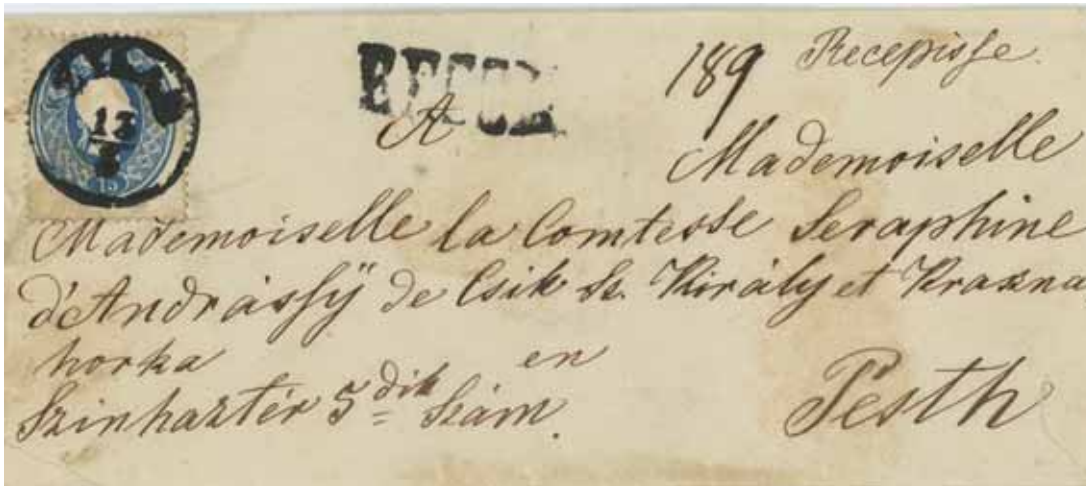 189 Recepisse.
RECOM
A
Mademoiselle
Mademoiselle la Comtesse Seraphine
d'Andrássÿ de Csik Sz. Király et Krasna
horka en
Szinháztér 5dik Szám.
Pesth
13
5
15